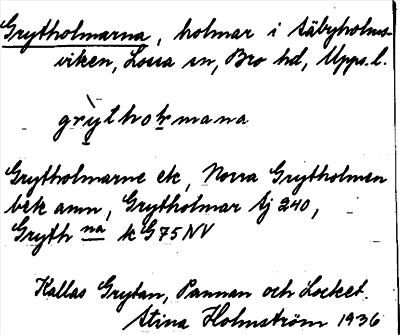 Grytholmarna, holmar i Säbyholms-
viken, Lossa sn, Bro hd, Upps. l.
grỳtholmana
Grytholmarne ek, Norra Grytholmen
bek anm, Grytholmar Gj 240,
Gryth na k G75NV
Kallas Grytan, Pannan och Locket.
Stina Holmström 1936